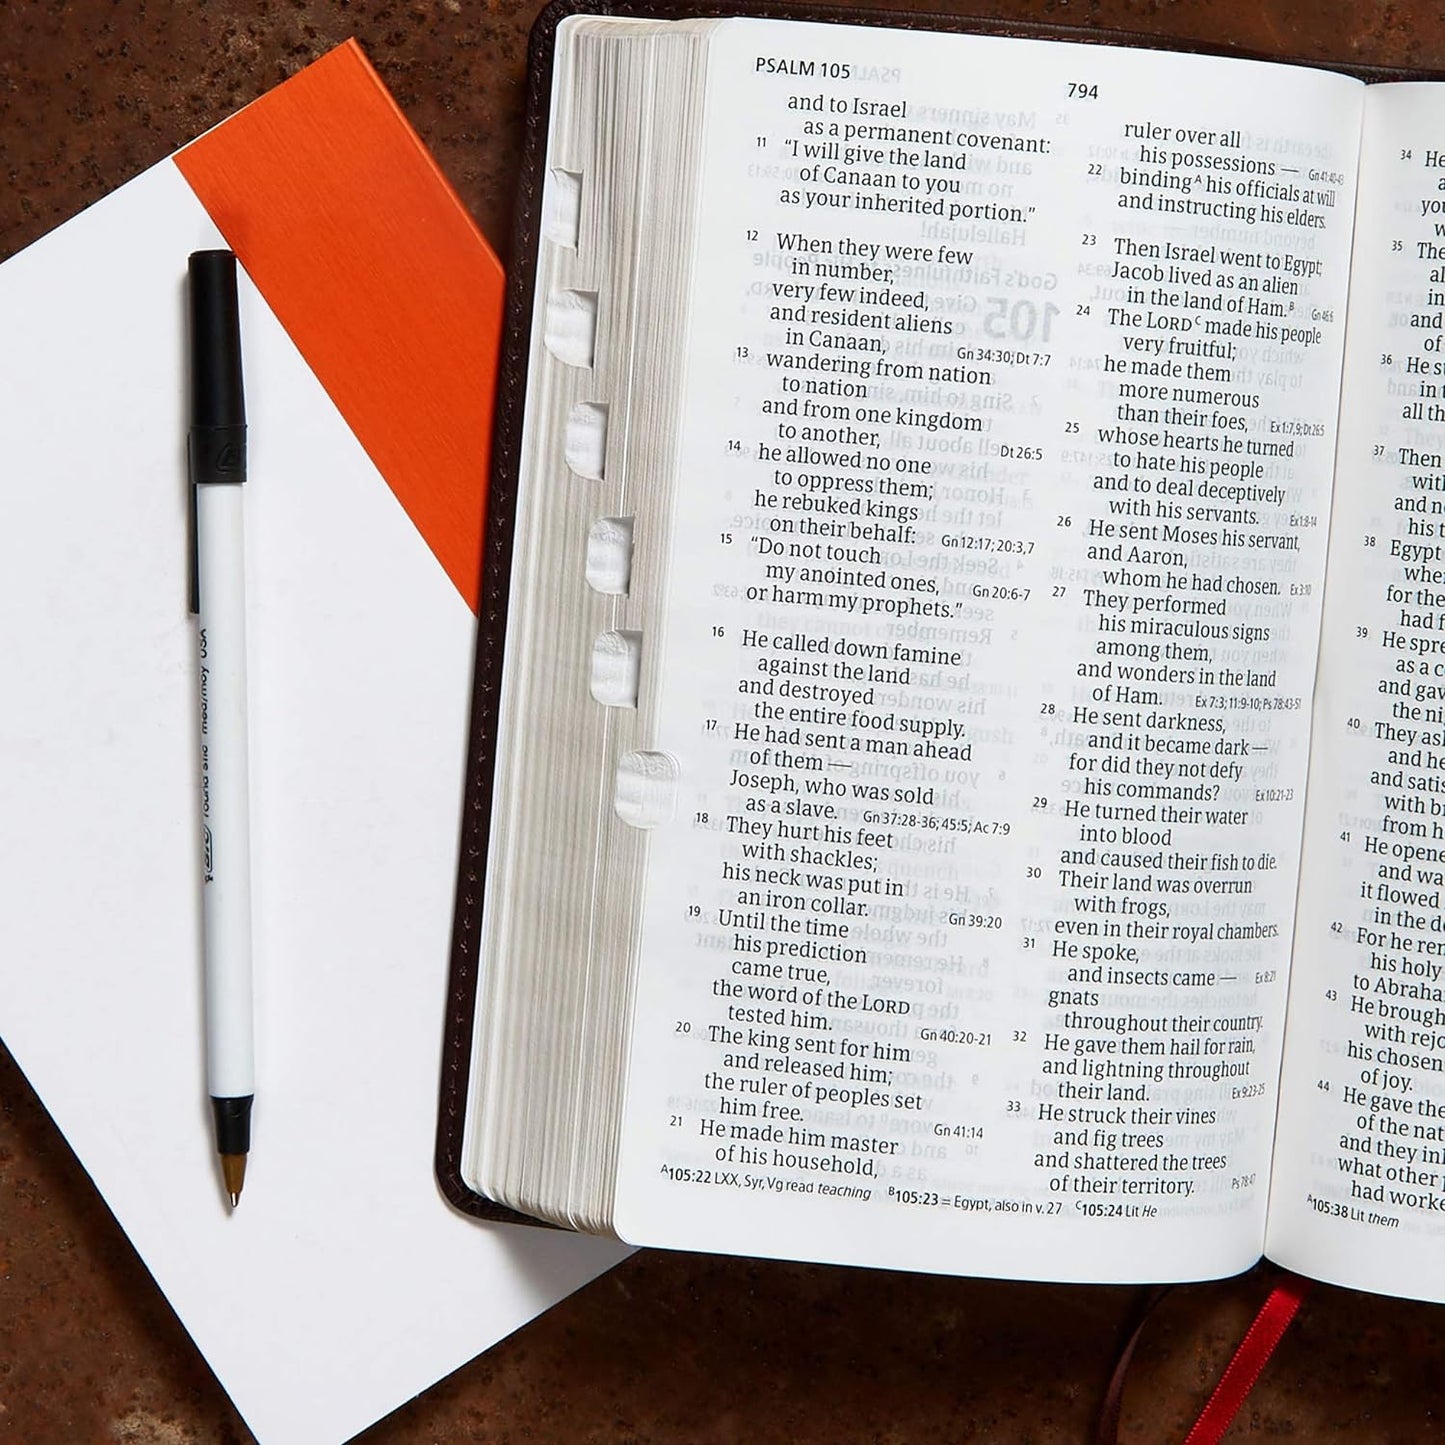 PSALM 105
794
and to Israel
as a permanent covenant:
11 “I will give the land
of Canaan to you
as your inherited portion.”
12 When they were few
in number,
very few indeed,
and resident aliens
in Canaan, Gn 34:30; Dt 7:7
13 wandering from nation
to nation
and from one kingdom
to another, Dt 26:5
14 he allowed no one
to oppress them;
he rebuked kings
on their behalf: Gn 12:17; 20:3,7
15 “Do not touch
my anointed ones, Gn 20:6-7
or harm my prophets.”
16 He called down famine
against the land
and destroyed
the entire food supply.
17 He had sent a man ahead
of them —
Joseph, who was sold
as a slave. Gn 37:28-36; 45:5; Ac 7:9
18 They hurt his feet
with shackles;
his neck was put in
an iron collar. Gn 39:20
19 Until the time
his prediction
came true,
the word of the LORD
tested him. Gn 40:20-21
20 The king sent for him
and released him;
the ruler of peoples set
him free. Gn 41:14
21 He made him master
of his household,
ruler over all
his possessions — Gn 41:40-43
22 binding A his officials at will
and instructing his elders.
23 Then Israel went to Egypt;
Jacob lived as an alien
in the land of Ham. B Gn 46:6
24 The LORD C made his people
very fruitful;
he made them
more numerous
than their foes, Ex 1:7,9; Dt 26:5
25 whose hearts he turned
to hate his people
and to deal deceptively
with his servants. Ex 1:8-14
26 He sent Moses his servant,
and Aaron,
whom he had chosen. Ex 3:10
27 They performed
his miraculous signs
among them,
and wonders in the land
of Ham. Ex 7:3; 11:9-10; Ps 78:43-51
28 He sent darkness,
and it became dark —
for did they not defy
his commands? Ex 10:21-23
29 He turned their water
into blood
and caused their fish to die.
30 Their land was overrun
with frogs,
even in their royal chambers.
31 He spoke,
and insects came — Ex 8:21
gnats
throughout their country.
32 He gave them hail for rain,
and lightning throughout
their land. Ex 9:23-25
33 He struck their vines
and fig trees
and shattered the trees
of their territory. Ps 78:47
A 105:22 LXX, Syr, Vg read teaching B 105:23 = Egypt, also in v. 27 C 105:24 Lit He
34 He
you
35 The
in
and
of
36 He
in
all
37 Then
with
and
his
38 Egypt
when
for the
had
39 He
as a
and
the
40 They
and he
and
with
from
41 He
and
it flowed
in the
42 For he
his holy
to
43 He
with
his chosen
of joy.
44 He gave the
of the
and they
what other
had
A 105:38 Lit them
BIC round stic USA